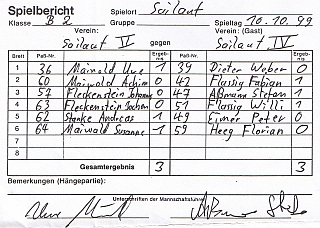 Spielbericht Spielort Sailauf
Klasse B 2 Gruppe Spieltag 10.10.99
Verein: Verein: (Gast)
Sailauf V gegen Sailauf IV
Brett Paß-Nr. Ergeb-nis Paß-Nr. Ergeb-nis
1 36 Maiwald Uwe 1 39 Dieter Weber 0
2 60 Maiwald 0 42 Flassig Fabian 1
3 57 Fleckenstein Johannes 0 47 Aßmann Stefan 1
4 63 Fleckenstein Jochen 0 51 Flassig Willi 1
5 62 Stenke Andreas 1 49 Eymer Peter 0
6 64 Maiwald Susanne 1 59 Heeg Florian 0
7
8
Gesamtergebnis 3 3
Bemerkungen (Hängepartie):
Unterschriften der Mannschaftsführer